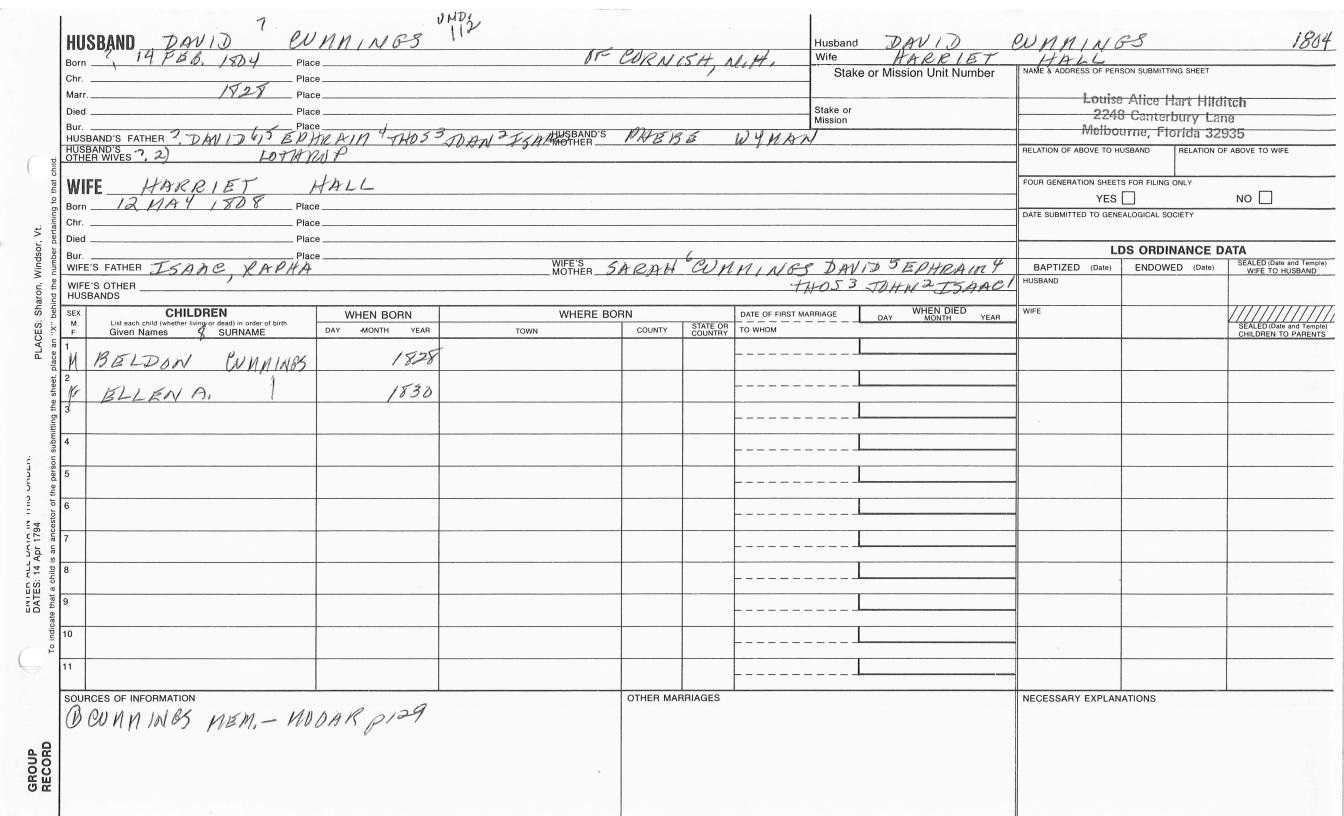 ? UMD. 112
HUSBAND DAVID CUMMINGS
Born ?, 14 FEB. 1804 Place OF CORNISH, N.H.
Chr. Place
Marr. 1828 Place
Died Place
Bur. Place
HUSBAND'S FATHER ?. DAVID 6,5 EPHRAIM 4 THOS 3 JOHN 2 ISAAC HUSBAND'S MOTHER PHEBE WYMAN
HUSBAND'S OTHER WIVES ?, 2) LOTHROP
WIFE HARRIET HALL
Born 12 MAY 1808 Place
Chr. Place
Died Place
Bur. Place
WIFE'S FATHER ISAAC, RAPHA WIFE'S MOTHER SARAH 6 CUMMINGS DAVID 5 EPHRAIM 4
THOS 3 JOHN 2 ISAAC 1
WIFE'S OTHER HUSBANDS
Husband DAVID CUMMINGS 1804
Wife HARRIET HALL
Stake or Mission Unit Number
Stake or Mission
NAME & ADDRESS OF PERSON SUBMITTING SHEET
Louise Alice Hart Hilditch
2248 Canterbury Lane
Melbourne, Florida 32935
RELATION OF ABOVE TO HUSBAND RELATION OF ABOVE TO WIFE
FOUR GENERATION SHEETS FOR FILING ONLY
YES NO
DATE SUBMITTED TO GENEALOGICAL SOCIETY
LDS ORDINANCE DATA
BAPTIZED (Date) ENDOWED (Date) SEALED (Date and Temple) WIFE TO HUSBAND
HUSBAND
WIFE
SEALED (Date and Temple) CHILDREN TO PARENTS
SEX M F
CHILDREN
List each child (whether living or dead) in order of birth
Given Names SURNAME
WHEN BORN
DAY MONTH YEAR
WHERE BORN
TOWN COUNTY STATE OR COUNTRY
DATE OF FIRST MARRIAGE
TO WHOM
WHEN DIED
DAY MONTH YEAR
1 M BELDON CUMMINGS 1828
2 ELLEN A. 1830
3
4
5
6
7
8
9
10
11
SOURCES OF INFORMATION
CUMMINGS MEM. – p129
OTHER MARRIAGES
NECESSARY EXPLANATIONS
PLACES: Sharon, Windsor, Vt.
ENTER ALL DATA IN THIS ORDER:
DATES: 14 Apr 1794
To indicate that a child is an ancestor of the person submitting the sheet, place an "X" behind the number pertaining to that child.
GROUP RECORD